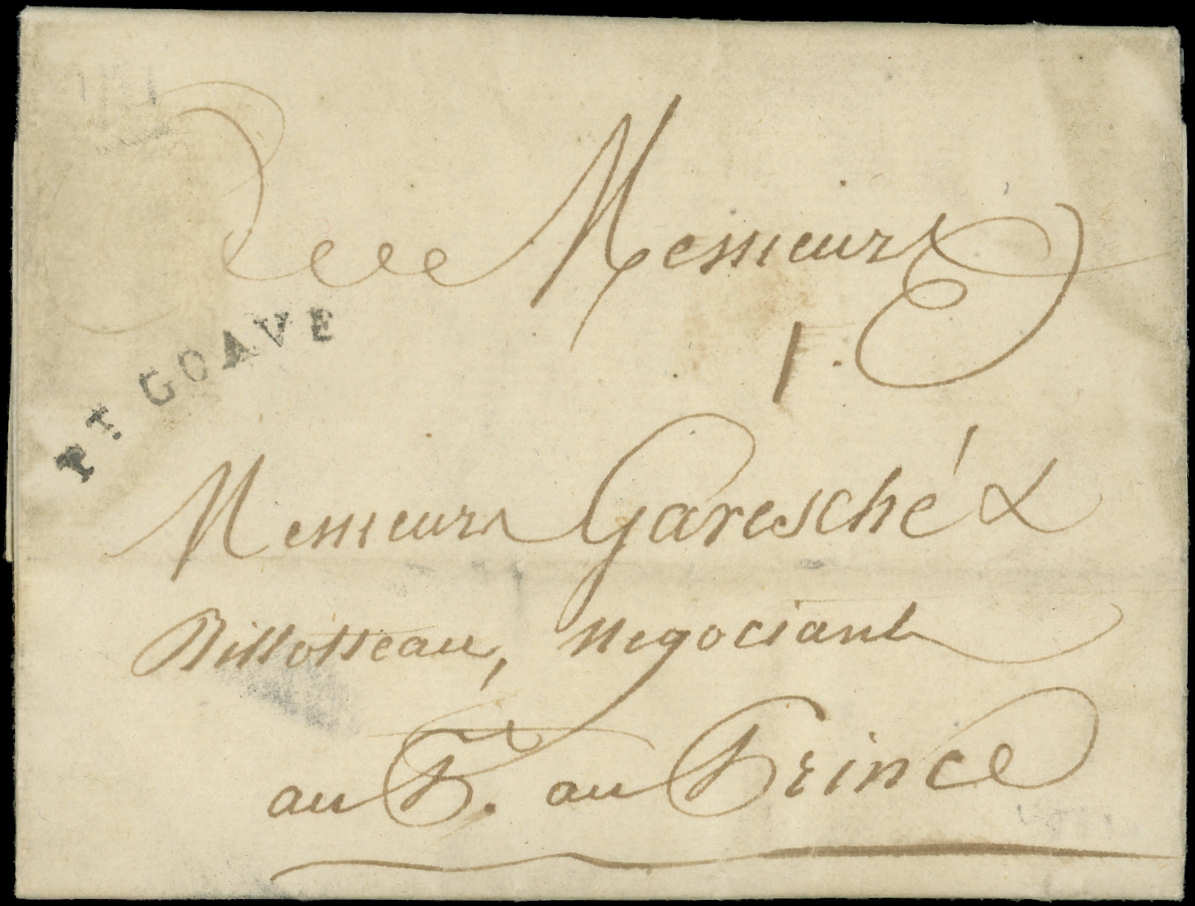 Messieurs
PT. GOAVE
1.
Messieurs Garesché &
Billotteau, Negociant
au P. au Prince